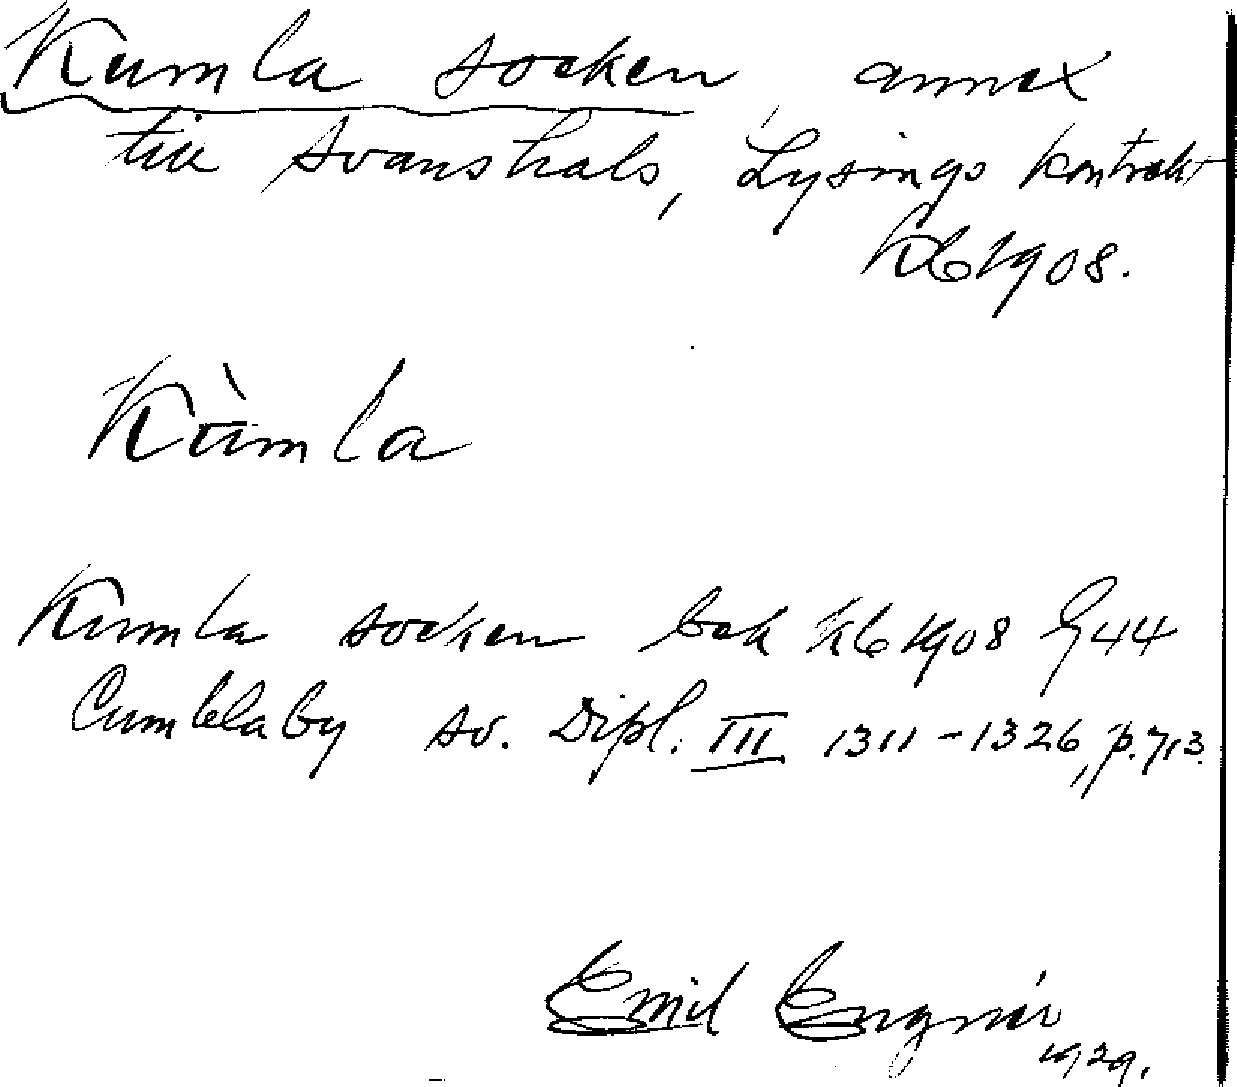 Kumla socken, annex
till Svanshals, Lysings kontrakt
kb 1908.
Kùmla
Kumla socken bok kb 1908 G 44
Cumblaby Sv. Dipl. III 1311-1326, p. 713.
Emil Engnér
1929.